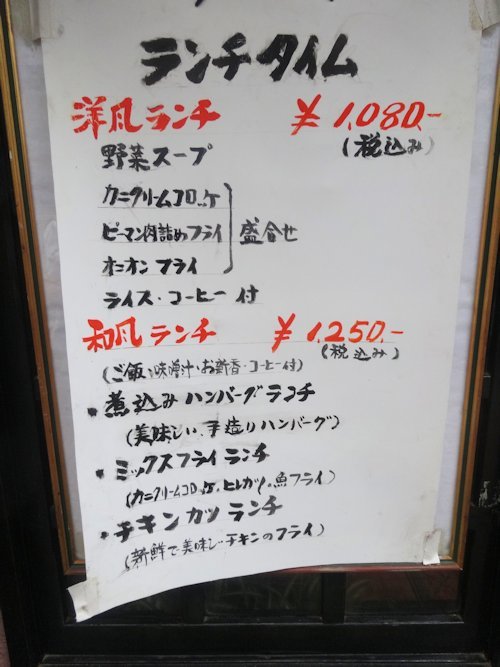 ランチタイム
洋風ランチ ¥1,080.-
(税込み)
野菜スープ
カニクリームコロッケ
ピーマン肉詰めフライ 盛合せ
オニオンフライ
ライス・コーヒー付
和風ランチ ¥1,250.-
(税込み)
(ご飯・味噌汁・お新香・コーヒー付)
・煮込みハンバーグランチ
(美味しい、手造りハンバーグ)
・ミックスフライランチ
(カニクリームコロッケ、ヒレカツ、魚フライ)
・チキンカツランチ
(新鮮で美味しいチキンのフライ)